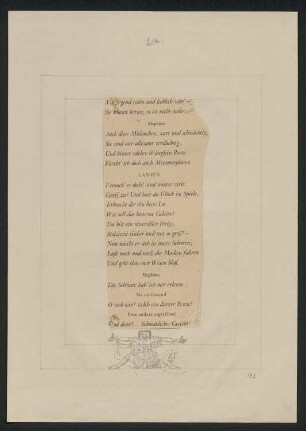 Was irgend schön und lieblich war! –
Sie kommt heran, es ist nicht mehr;
Mephisto:
Auch diese Mühmchen, zart und schmächtig,
Sie sind mir allesamt verdächtig,
Und hinter solcher Wänglein Rosen
Fürcht' ich doch auch Metamorphosen.
LAMIEN
Versuch' es doch! sind unser viele.
Greif zu! Und hast du Glück im Spiele,
Erhasche dir das beste Los.
Was soll das lüsterne Geleier?
Du bist ein miserabler Freier,
Stolzierst einher und tust so groß! –
Nun mischt er sich in unsre Scharen;
Laßt nach und nach die Masken fahren
Und gebt ihm euer Wesen bloß.
Mephisto:
Die Schönste hab' ich mir erlesen..
Sie umfassend
O weh mir! welch ein dürrer Besen!
Eine andere ergreifend
Und diese? . . Schmähliches Gesicht!